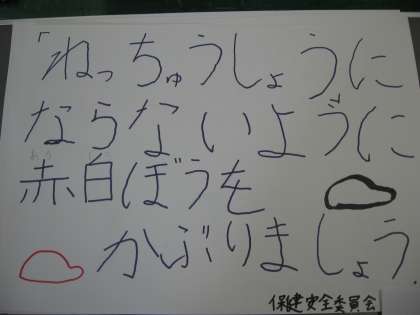 「ねっちゅうしょうに
ならないように
赤白ぼうを
かぶりましょう.
保健安全委員会